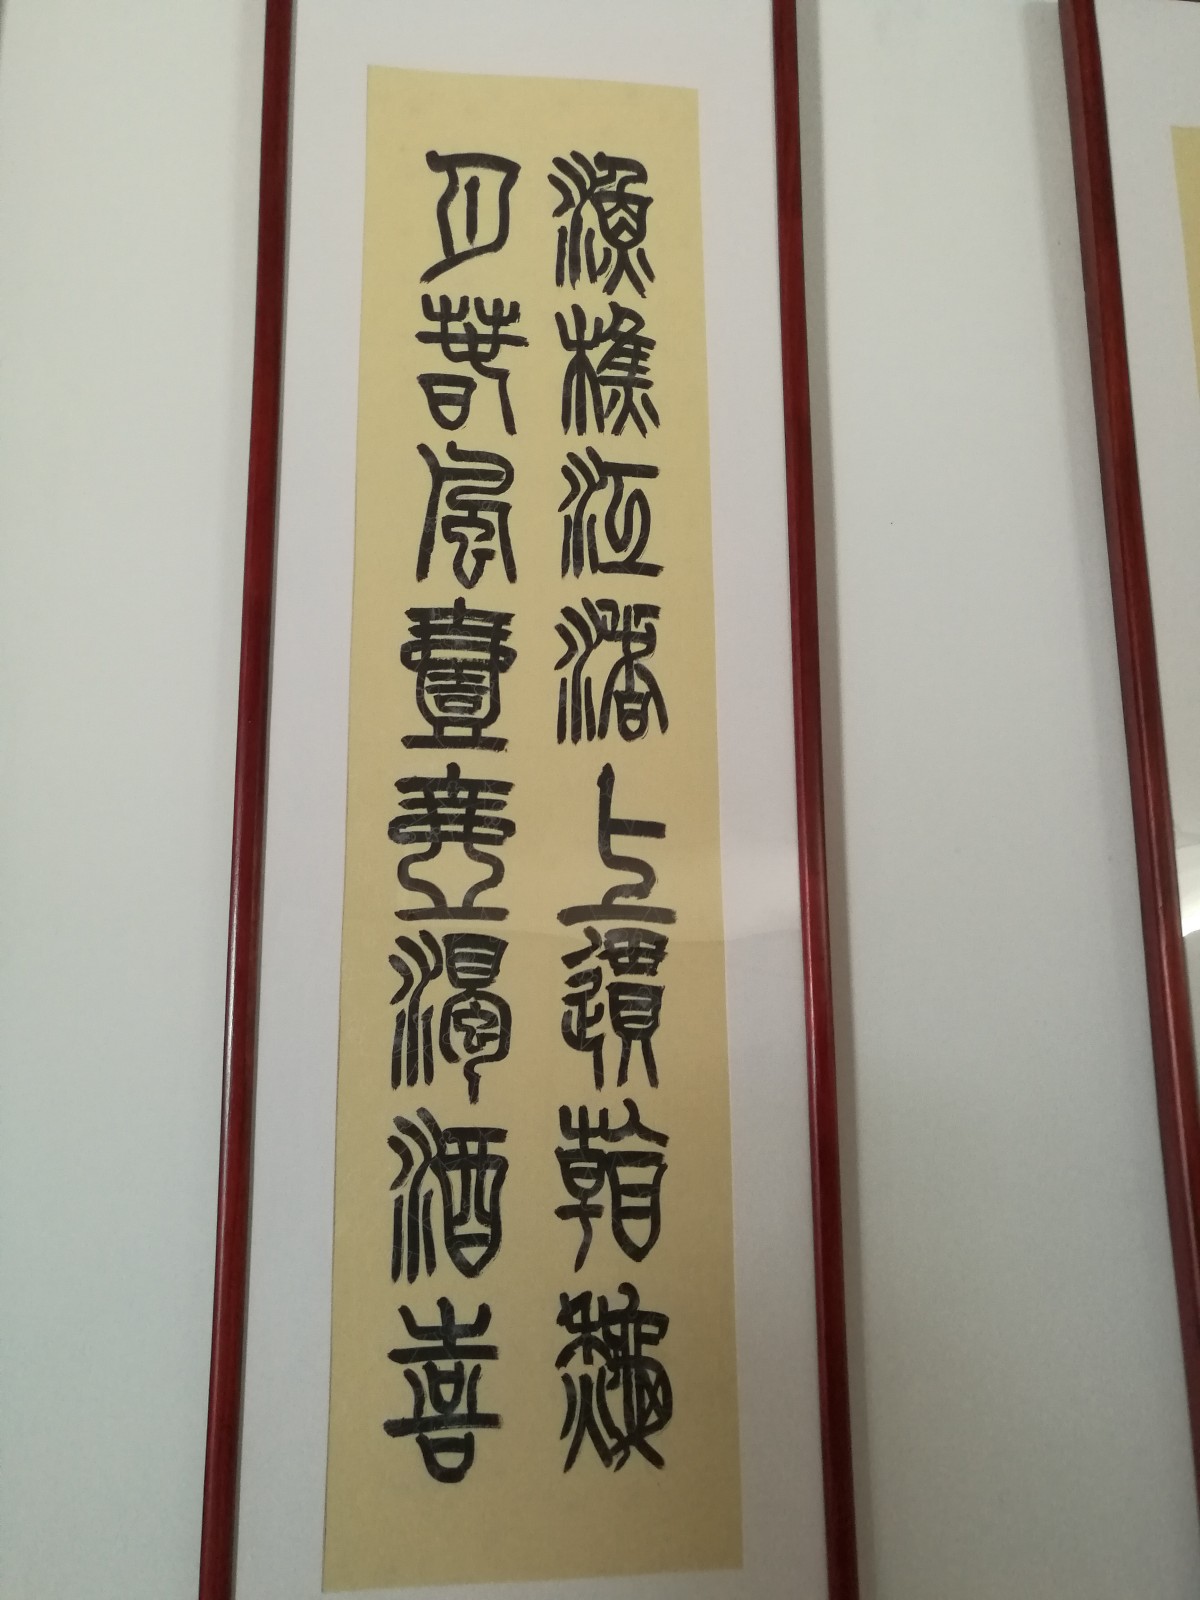 漁樵江渚上慣看秋
月春風壹壺濁酒喜